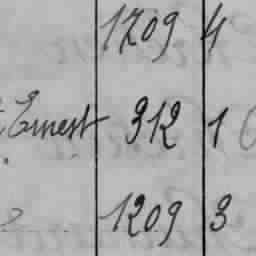 1209 4
Ernest 312 1
1209 3